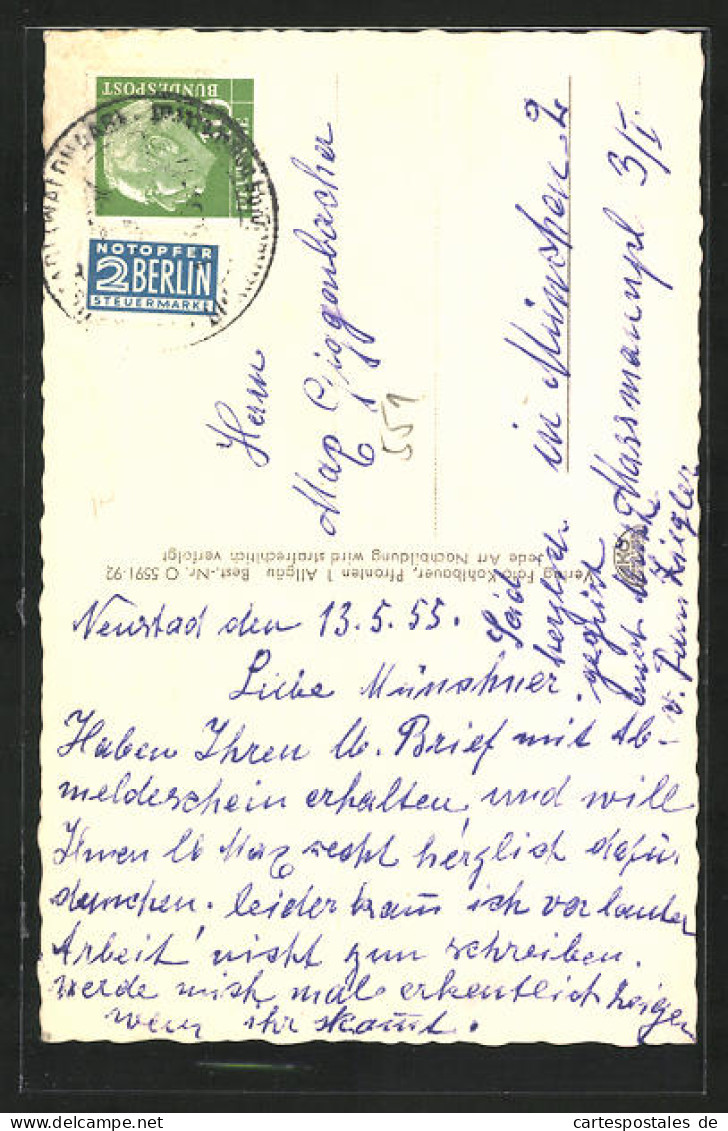 BUNDESPOST
NOTOPFER
2 BERLIN
STEUERMARKE
Herrn
Max Giggenbacher
in München 2
Massmannpl 3/I
551
Verlag Foto Kohlbauer, Pfronten 1 Allgäu Best.-Nr. O 5591-92
Jede Art Nachbildung wird strafrechtlich verfolgt
Neustad den 13.5.55.
Liebe Münschner
Haben Ihren lb. Brief mit Ab-
meldeschein erhalten, und will
Ihnen lb Max recht herzlich dafür
danchen. leider kam ich vor lauter
Arbeit nicht zum schreiben.
werde mich mal erkentlich zeigen
wen ihr skomt.
Seid
herzlich
gegrüst
auch
v. Fam Ziegler
cartespostales de
www.delcampe.net